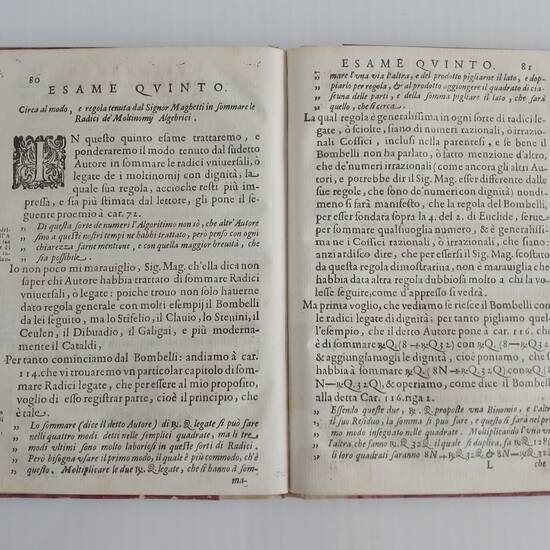 80
ESAME QVINTO.
Circa al modo, e regola tenuta dal Signor Maghetti in sommare le
Radici de' Moltinomij Algebrici.
IN questo quinto esame trattaremo, e
ponderaremo il modo tenuto dal sudetto
Autore in sommare le radici vniuersali, ò
legate de i moltinomij con dignità; la
quale sua regola, accioche resti più im-
pressa, e sia più stimata dal lettore, gli pone il se-
guente proemio à car. 72.
„ Di questa sorte de numeri l'Algoritimo non sò, che altr'Autore
„ sino a questi nostri tempi ne habbi trattato, però penso con ogni
„ chiarezza farne mentione, e con quella maggior breuità, che
„ sia possibile.
Io non poco mi marauiglio, Sig. Mag. ch'ella dica non
saper chi Autore habbia trattato di sommare Radici
vniuersali, ò legate: poiche trouo non solo hauerne
dato regola generale con molti esempij il Bombelli
da lei seguito, ma lo Stifelio, il Clauio, lo Steuini, il
Ceulen, il Dibuadio, il Galigai, e più moderna-
mente il Cataldi,
Per tanto cominciamo dal Bombelli: andiamo à car.
114. che vi trouaremo vn particolar capitolo di som-
mare Radici legate, che per essere al mio proposito,
voglio di esso registrar parte, cioè il principio, che
è tale.
„ Lo sommare (dice il detto Autore) di R. Q legate si può fare
„ nelli quattro modi detti nelle simplici quadrate, ma li tre
„ modi vltimi sono molto laboriosi in questi sorti di Radici.
„ Però bisogna vsare il primo modo, il quale è più commodo, ch'è
„ questo. Moltiplicare le due R. Q legate, che si hanno à som-
ma-
81
ESAME QVINTO.
„ mare l'una via l'altra, e del prodotto pigliarne il lato, e dop-
„ piarlo per regola, & al prodotto aggiongere il quadrato di cia-
„ scuna delle parti, e della somma pigliare il lato, che sarà
„ quello, che si cerca.
La qual regola è generalissima in ogni sorte di radici le-
gate, ò sciolte, siano di numeri rationali, ò irrazio-
nali Cossici, inclusi nella parentesi, e se bene il
Bombelli non ha parlato, ò fatto menzione d'altro,
che de'numeri irrazionali (come ancora gli altri Au-
tori, e potrebbe dir il Sig. Mag. esser differente dalle
sue regole, che sono de numeri con dignità) nondi-
meno si farà manifesto, che la regola del Bombelli,
per esser fondata sopra la 4. del 2. di Euclide, serue
per sommar qualunque numero, & è generalissi-
ma ne i Cossici razionali, ò irrazionali, che siano:
anzi ardisco dire, che per essersi il Sig. Mag. scostato
da questa regola dimostratiua, non è marauiglia che
habbia data altra regola dubbiosa molto a chi la vo-
lesse seguite, come d'appresso si vedrà.
Ma prima voglio, che vediamo se riesce il Bombelli con
le radici legate di dignità: per tanto pigliamo quel-
l'esempio, che il detto Autore pone à car. 116. che
è di sommare R Q (8 + R Q 32) con R Q (8 — R Q 32)
& aggiungamogli le dignità, cioè poniamo, che si
habbia à sommare R Q (8N + R Q 32Q) con R Q (8N
— R Q 32Q), & operiamo, come dice il Bombelli
alla detta Car. 116. riga 2.
„ Essendo queste due, R. Q proposte vna Binomio, e l'altra
„ il suo Residuo, la somma si può fare, e questo si farà nel pri-
„ mo modo insegnato nelle quadrate. Moltiplicando l'una via
L
che